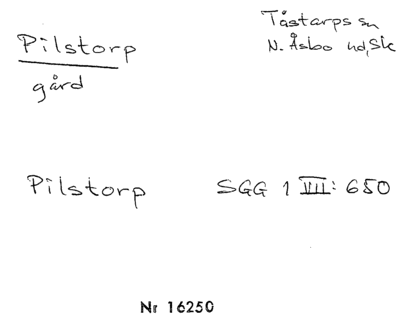 Pilstorp
gård
Tåstarps sn
N. Åsbo hd, Sk
Pilstorp SGG 1 VIII: 650
Nr 16250